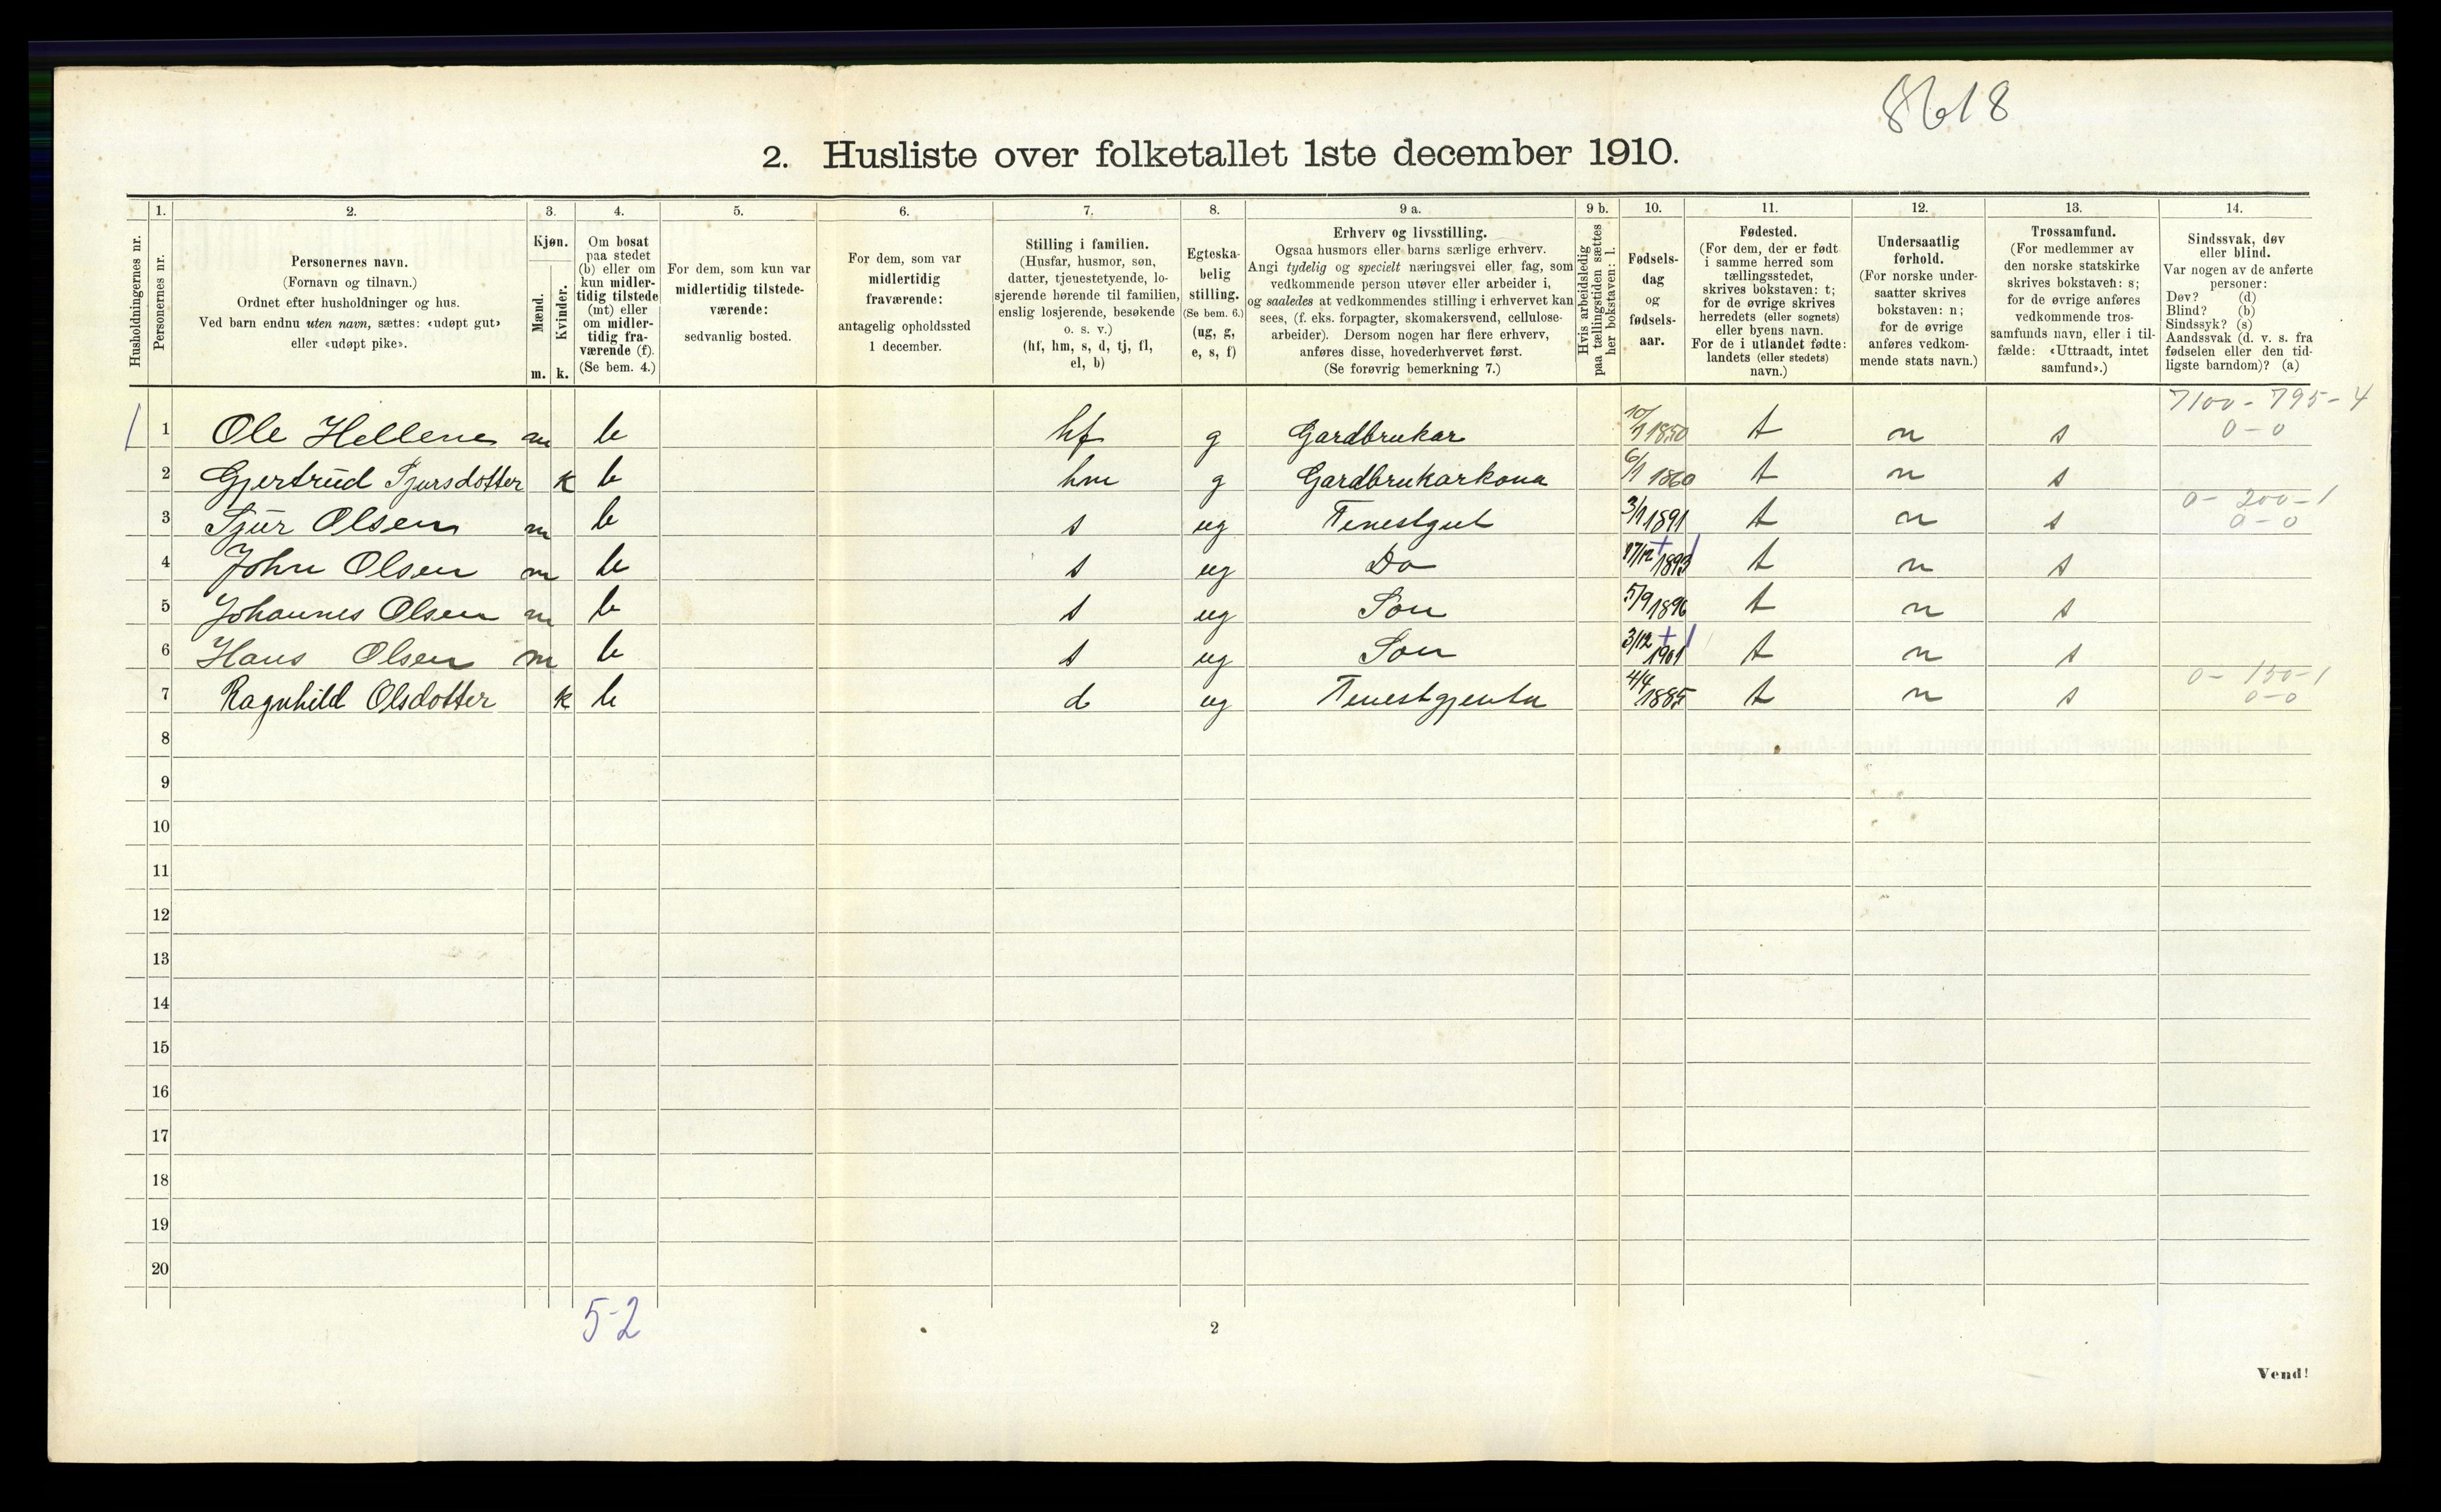 8618
2. Husliste over folketallet 1ste december 1910.
Husholdningernes nr.
1.
Personernes nr.
2.
Personernes navn.
(Fornavn og tilnavn.)
Ordnet efter husholdninger og hus.
Ved barn endnu uten navn, sættes: «udøpt gut»
eller «udøpt pike».
3.
Kjøn.
Mænd.
Kvinder.
m. k.
4.
Om bosat
paa stedet
(b) eller om
kun midler-
tidig tilstede
(mt) eller
om midler-
tidig fra-
værende (f).
(Se bem. 4.)
5.
For dem, som kun var
midlertidig tilstede-
værende:
sedvanlig bosted.
6.
For dem, som var
midlertidig
fraværende:
antagelig opholdssted
1 december.
7.
Stilling i familien.
(Husfar, husmor, søn,
datter, tjenestetyende, lo-
sjerende hørende til familien,
enslig losjerende, besøkende
o. s. v.)
(hf, hm, s, d, tj, fl,
el, b)
8.
Egteska-
belig
stilling.
(Se bem. 6.)
(ug, g,
e, s, f)
9 a.
Erhverv og livsstilling.
Ogsaa husmors eller barns særlige erhverv.
Angi tydelig og specielt næringsvei eller fag, som
vedkommende person utøver eller arbeider i,
og saaledes at vedkommendes stilling i erhvervet kan
sees, (f. eks. forpagter, skomakersvend, cellulose-
arbeider). Dersom nogen har flere erhverv,
anføres disse, hovederhvervet først.
(Se forøvrig bemerkning 7.)
9 b.
Hvis arbeidsledig
paa tællingstiden sættes
her bokstaven: l.
10.
Fødsels-
dag
og
fødsels-
aar.
11.
Fødested.
(For dem, der er født
i samme herred som
tællingsstedet,
skrives bokstaven: t;
for de øvrige skrives
herredets (eller sognets)
eller byens navn.
For de i utlandet fødte:
landets (eller stedets)
navn.)
12.
Undersaatlig
forhold.
(For norske under-
saatter skrives
bokstaven: n;
for de øvrige
anføres vedkom-
mende stats navn.)
13.
Trossamfund.
(For medlemmer av
den norske statskirke
skrives bokstaven: s;
for de øvrige anføres
vedkommende tros-
samfunds navn, eller i til-
fælde: «Uttraadt, intet
samfund».)
14.
Sindssvak, døv
eller blind.
Var nogen av de anførte
personer:
Døv? (d)
Blind? (b)
Sindssyk? (s)
Aandssvak (d. v. s. fra
fødselen eller den tid-
ligste barndom)? (a)
7100 - 795 - 4
1 Ole Hellene m b hf g Gardbrukar 10/1 1850 t n s 0 - 0
2 Gjertrud Sjursdotter k b hm g Gardbrukarkona 6/1 1860 t n s
0 - 200 - 1
3 Sjur Olsen m b s ug Tenestgut 3/1 1891 t n s 0 - 0
4 John Olsen m b s ug Do 17/12 1893 t n s
5 Johannes Olsen m b s ug Son 5/9 1896 t n s
6 Hans Olsen m b s ug Son 3/12 1901 t n s
0 - 150 - 1
7 Ragnhild Olsdotter k b d ug Tenestgjenta 4/4 1885 t n s 0 - 0
8
9
10
11
12
13
14
15
16
17
18
19
20
5-2
2
Vend!